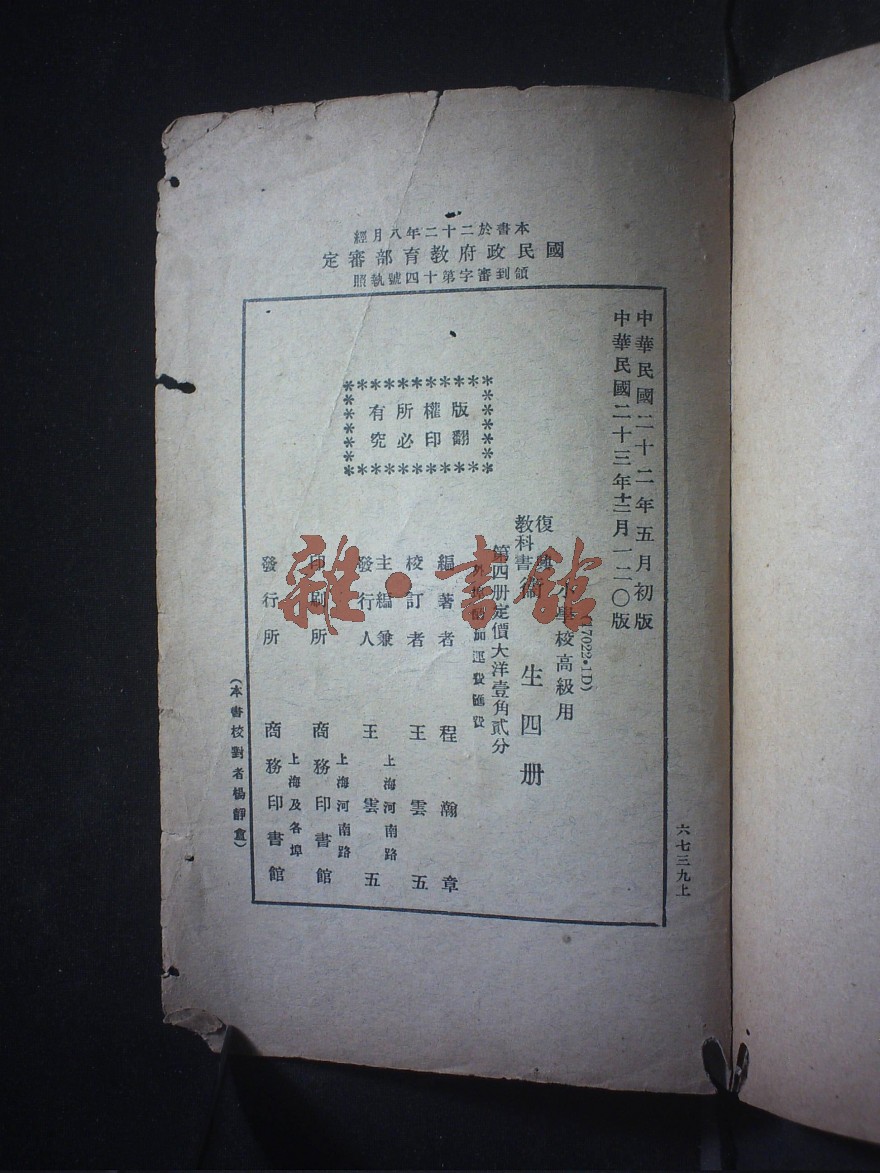 本書於二十二年八月經
國民政府教育部審定
領到審字第十四號執照
中華民國二十二年五月初版
中華民國二十三年十二月一二〇版
小學校高級用
復興
教科書
衛生四册
第四册定價大洋壹角貳分
加運費匯費
版權所有
翻印必究
編著者 程瀚章
校訂者 王雲五
主編兼
發行人 王雲五
上海河南路
印刷所 商務印書館
上海河南路
發行所 商務印書館
上海及各埠
(本書校對者楊靜盦)
六七三九上
雜·書館